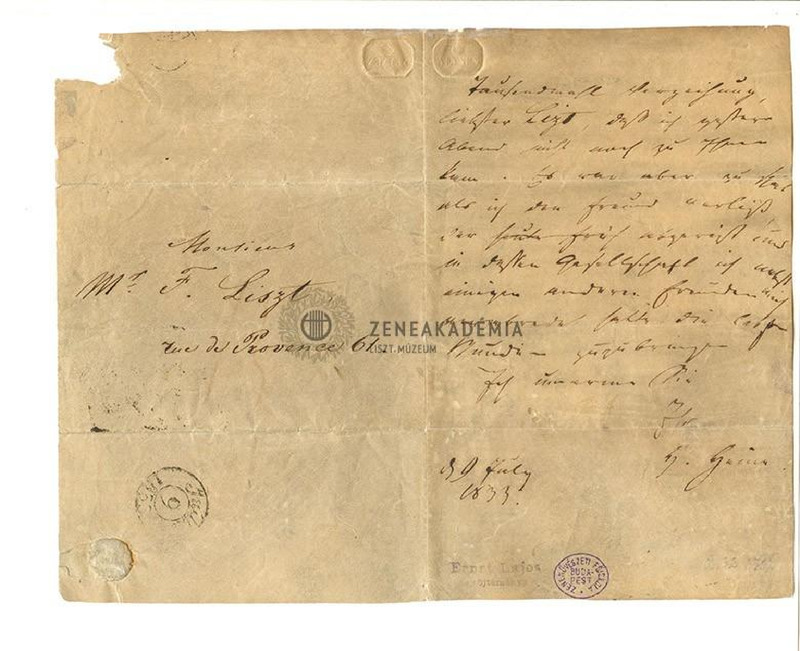 Monsieur
Mr. F. Liszt,
rue de Provence 61.
Tausendmahl Verzeihung,
liebster Lizt, daß ich gestern
Abend nicht noch zu Ihnen
kam. Es war aber zu spät
als ich den Freund verließ
der heute früh abgereist und
in dessen Gesellschaft ich nebst
einigen anderen Freunden
hatte die letzten
Stunden zuzubringen
Ich umarme Sie
Ihr
H. Heine.
d 9 July
1833.
ZENEAKADÉMIA
LISZT MÚZEUM
6
Ernst Lajos
ZENEMŰVÉSZETI FŐISKOLA
BUDA-
PEST